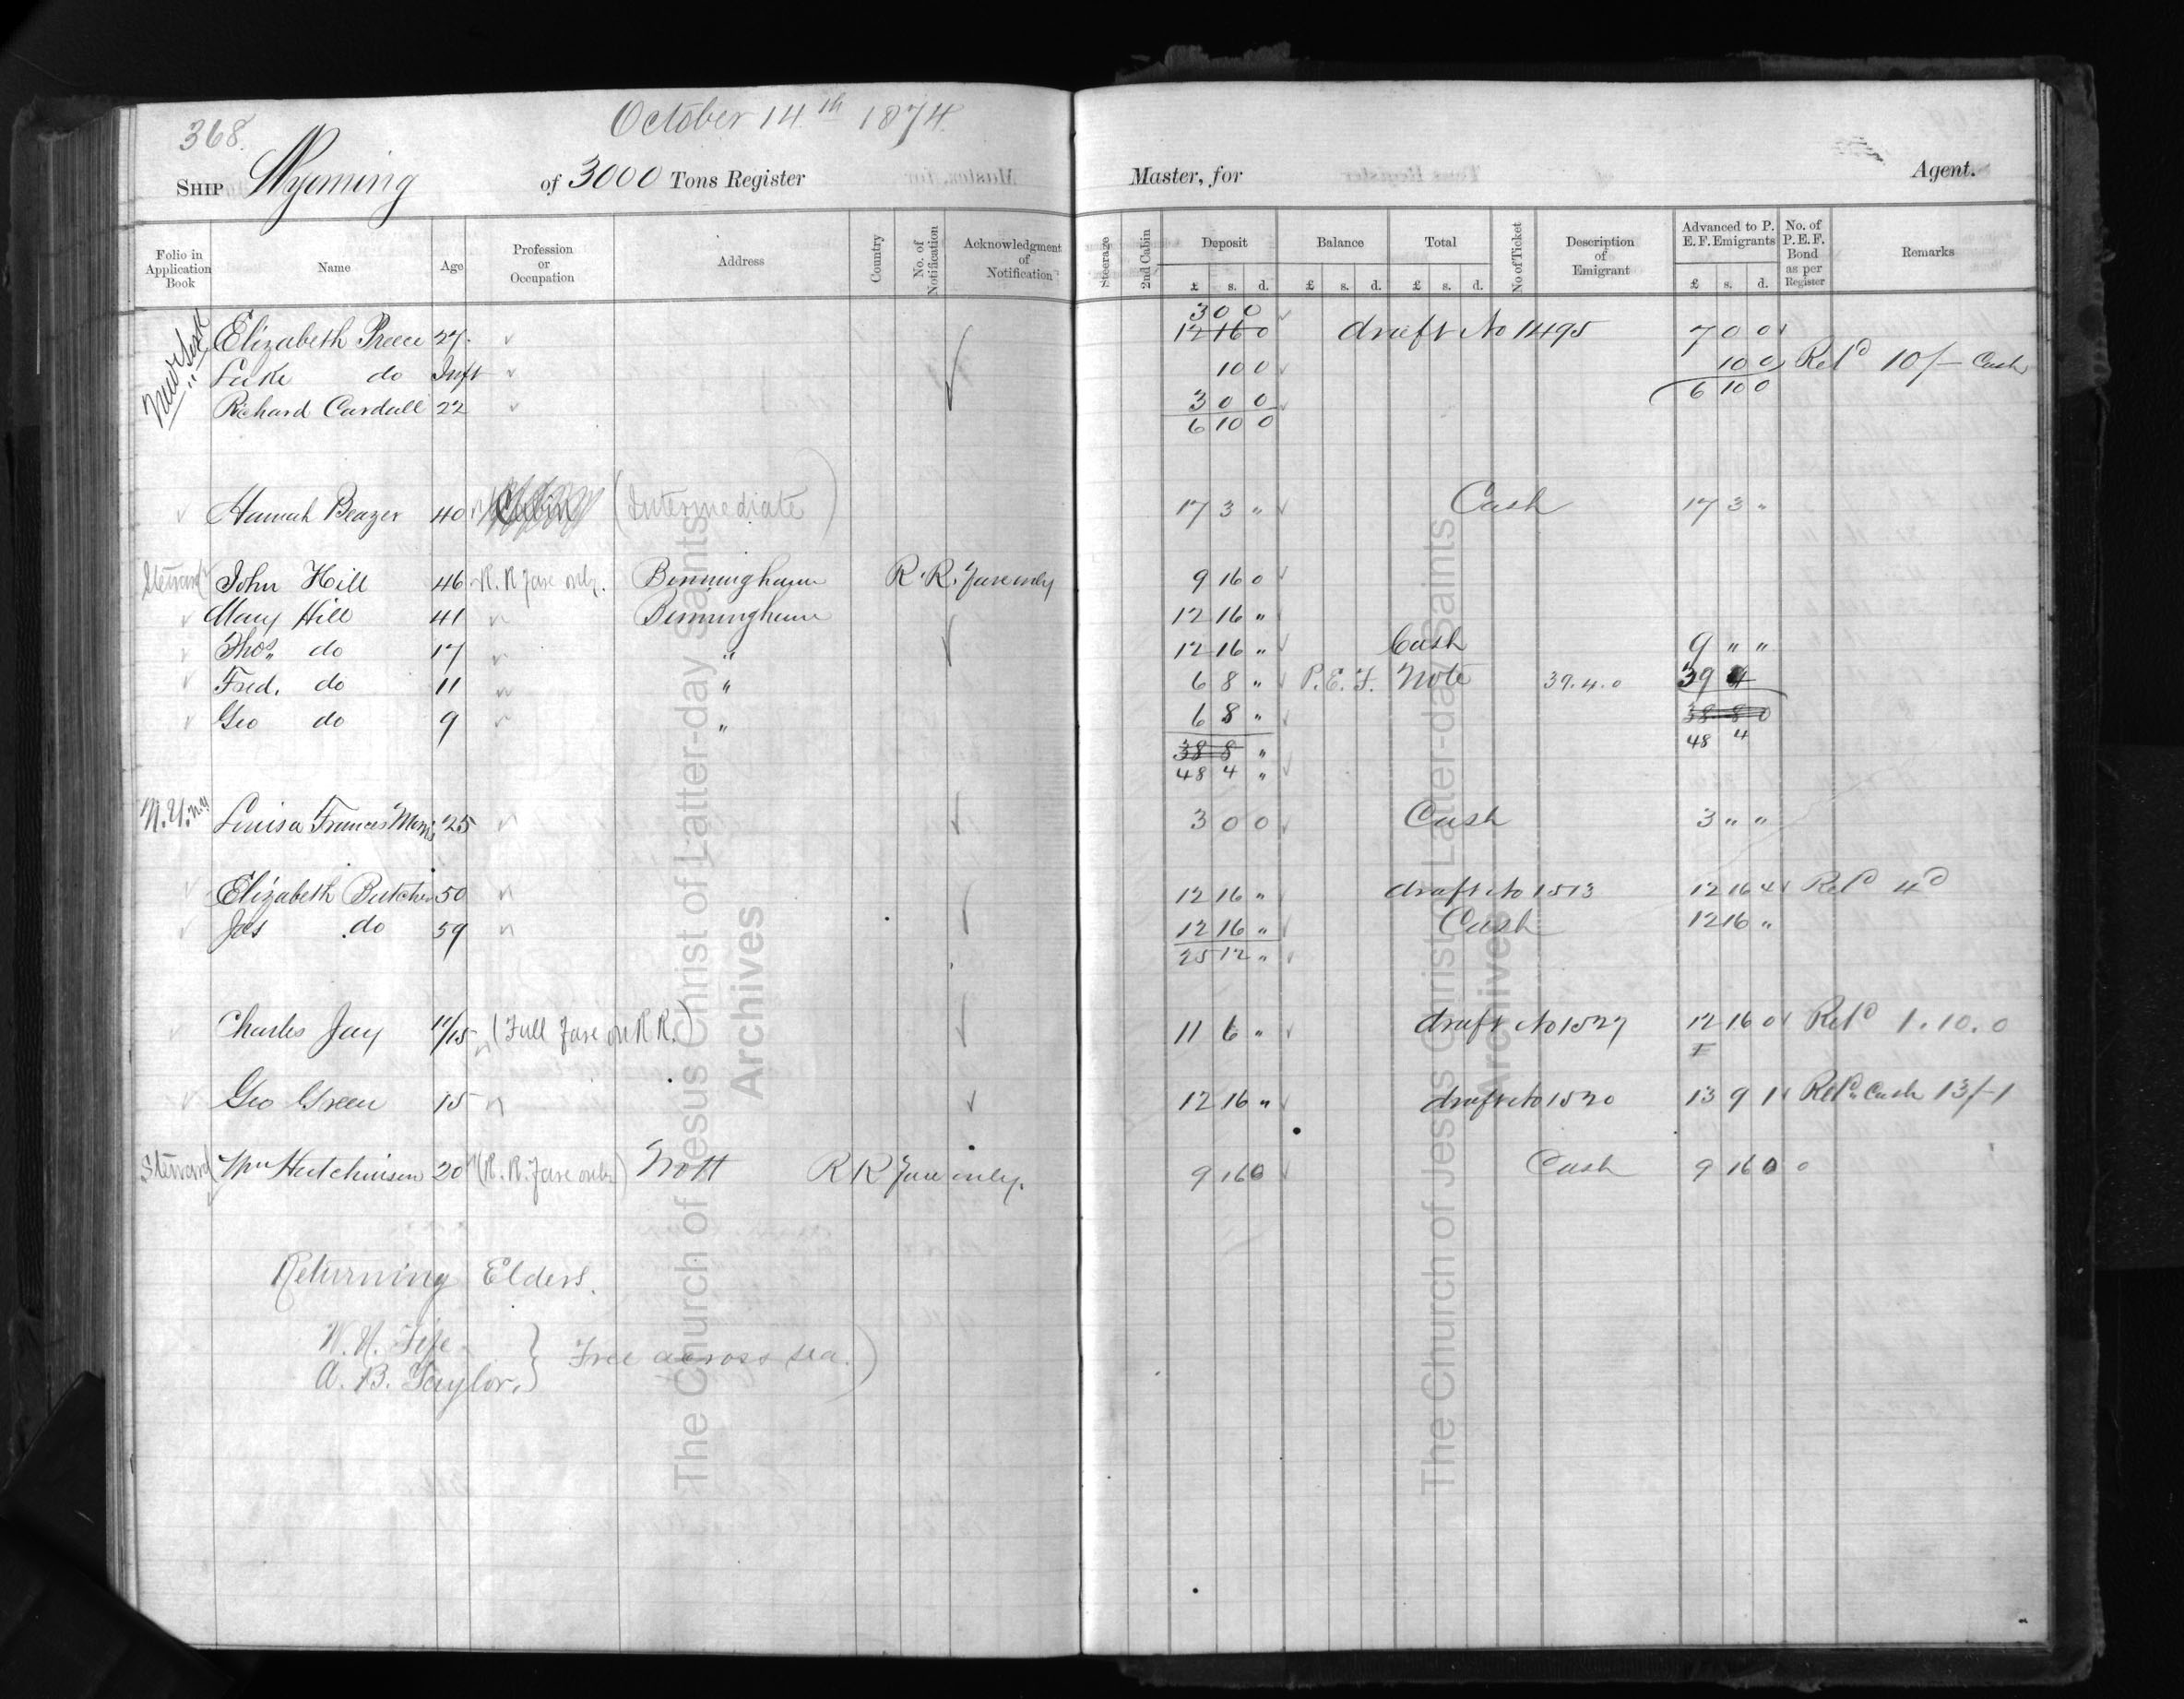 368.
October 14th 1874.
SHIP Wyoming of 3000 Tons Register Master, for Agent.
Folio in Application Book Name Age Profession or Occupation Address Country No. of Notification Acknowledgment of Notification Steerage 2nd Cabin Deposit Balance Total No of Ticket Description of Emigrant Advanced to P. E. F. Emigrants No. of P. E. F. Bond as per Register Remarks
£ s. d. £ s. d. £ s. d. £ s. d.
3 0 0
New York Elizabeth Preece 27. 12 16 0 draft No 1495 7 0 0
" Luke do Inft 10 0 10 0 Retd 10/- Cash
Richard Cardall 22 3 0 0 6 10 0
6 10 0
Hannah Beazer 40 Cabin (Intermediate) 17 3 " Cash 17 3 "
Steward John Hill 46 R. R fare only. Birmingham R. R. fare only 9 16 0
Mary Hill 41 Birmingham 12 16 "
Thos. do 17 " 12 16 " Cash 9 " "
Fred. do 11 " 6 8 " P. E. F. Note 39. 4. 0 39 4
Geo do 9 " 6 8 " 38 8 0
38 8 " 48 4
48 4 "
N.Y. N.Y. Louisa Frances Morris 25 3 0 0 Cash 3 " "
Elizabeth Butcher 50 12 16 " draft No 1513 12 16 4 Retd 4d
Jas do 59 12 16 " Cash 12 16 "
25 12 "
Charles Jay 11/15 (Full fare on R R.) 11 6 " draft No 1527 12 16 0 Retd 1. 10. 0
Geo Green 15 12 16 " draft No 1520 13 9 1 Retd Cash 13/-1
Steward Wm Hutchinson 20 (R. R. fare only) Nott R R fare only. 9 16 0 Cash 9 16 0 0
Returning Elders.
W. N. Fife } Free across sea.)
A. B. Taylor. }
The Church of Jesus Christ of Latter-day Saints
Archives
The Church of Jesus Christ of Latter-day Saints
Archives